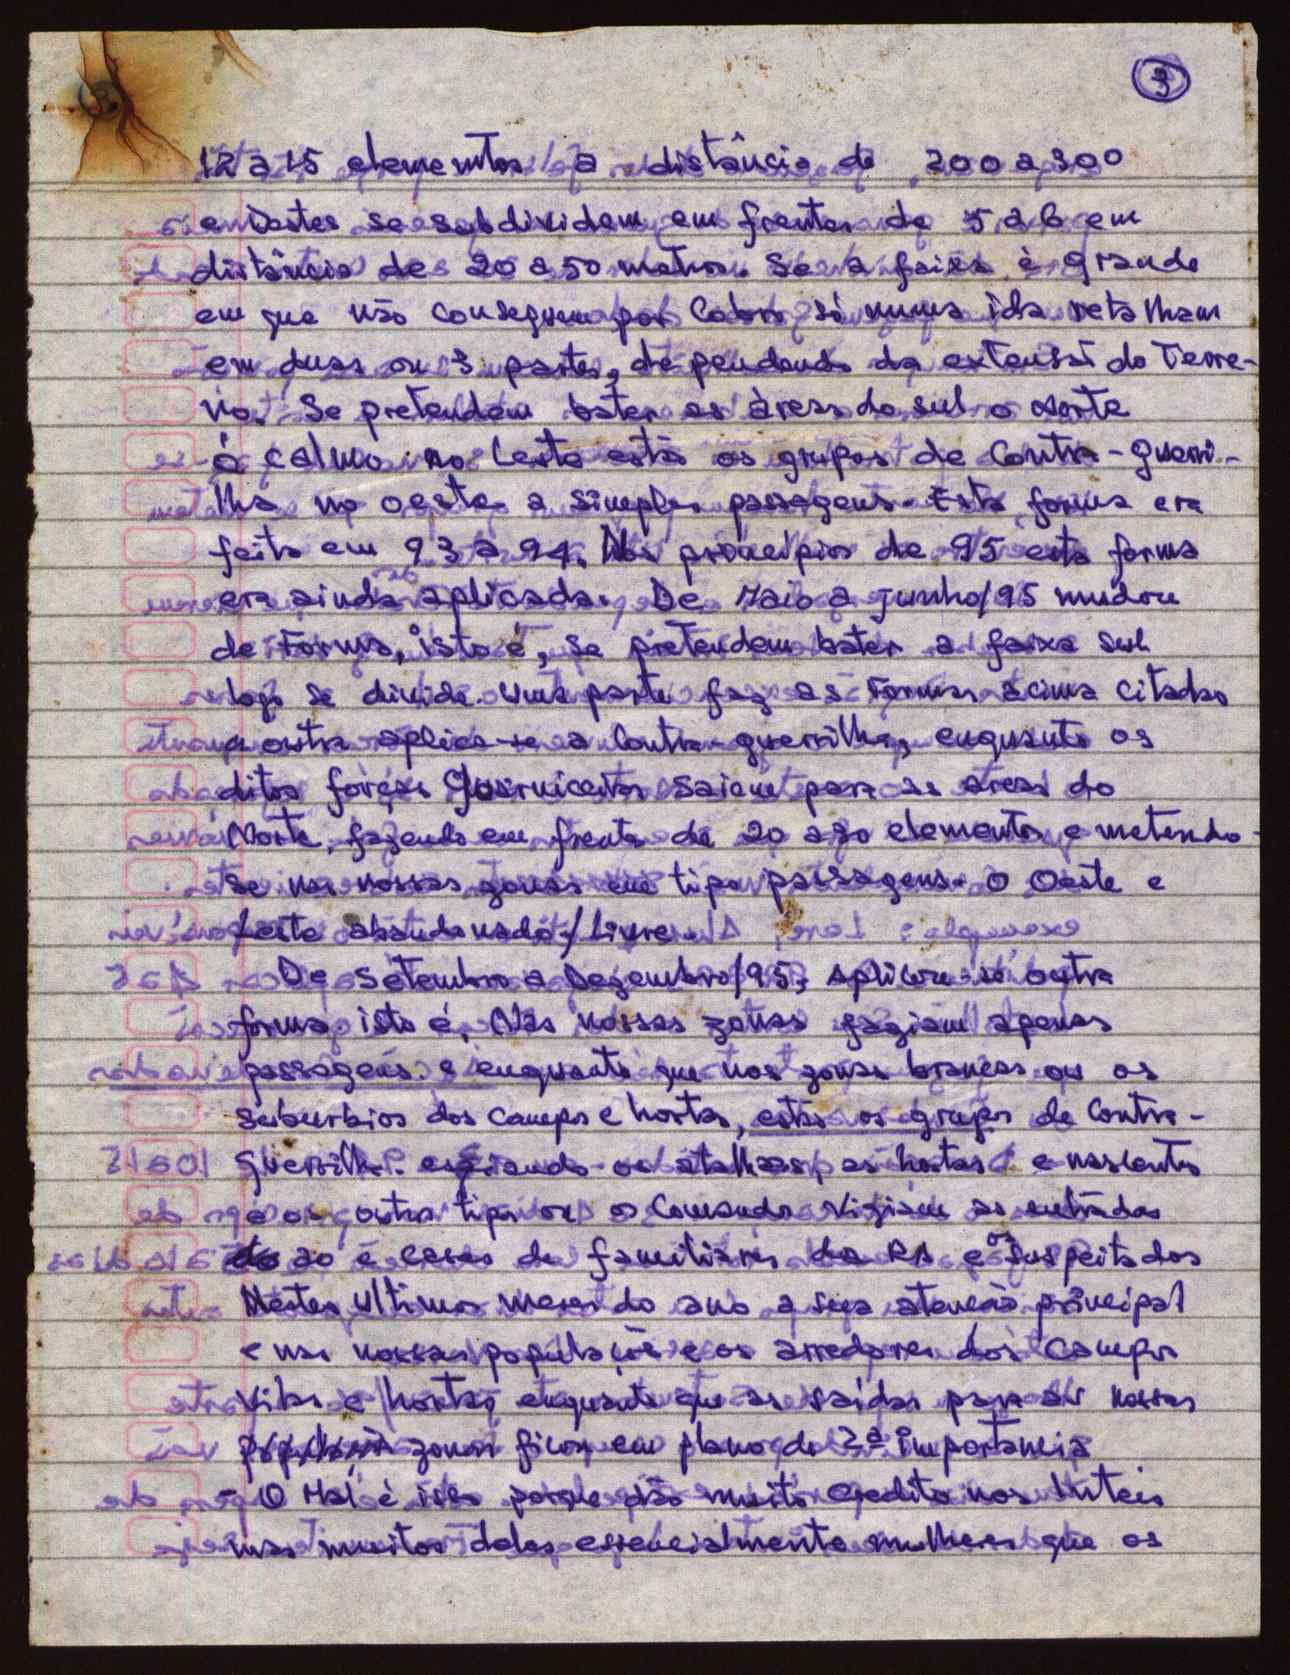 3
12 a 15 elementos a distância de 200 a 300
e Destes se subdividem em frentes de 5 a 6 em
distância de 20 a 50 metros. Se a faixa é grande
em que não conseguem por Cobrir só numa ida retalham
em duas ou 3 partes, dependendo da extensão do Terre-
no. Se pretendem bater as àreas do sul o norte
é calmo no Leste está os grupos de Contra-Guerri-
lha no oeste a simples passagens. Esta forma era
feita em 93 a 94. Nos principios de 95 esta forma
era ainda aplicada. De Maio a Junho/95 mudou
de Forma, isto é, se pretendem bater a faixa sul
logo se divide. Uma parte faz as Formas acima citadas
a outra aplica-se a Contra-guerrilha, enquanto os
ditos forças Guarnicentes saiem para as areas do
Norte, fazendo em frente de 20 a 30 elementos e metendo-
se nas nossas zonas em tipo passagens. O Oeste e
Leste abandonado/Livre.
De Setembro a Dezembro/95, aplicou-se outra
forma isto é, Nas nossas zonas faziam apenas
passagens e enquanto que nas zonas brancas ou os
suburbios dos campos e hortas, estão os grupos de Contra-
Guerrilha. espiando os atalhos, as hortas e nascentes
e os outros tipos ou o Comando vigiam as entradas
do ao e casas de familiares da RA e os suspeitados
Nestes ultimos meses do ano a sua atenção principal
e nas nossas populações e os arredores dos Campos
Vilas e hortas, enquanto que as saidas para as nossas
zonas ficou em plano de 2ª importancia
- O Mal é isso porque dão muito Credito nos
mas muitos deles essencialmente mulheres que os